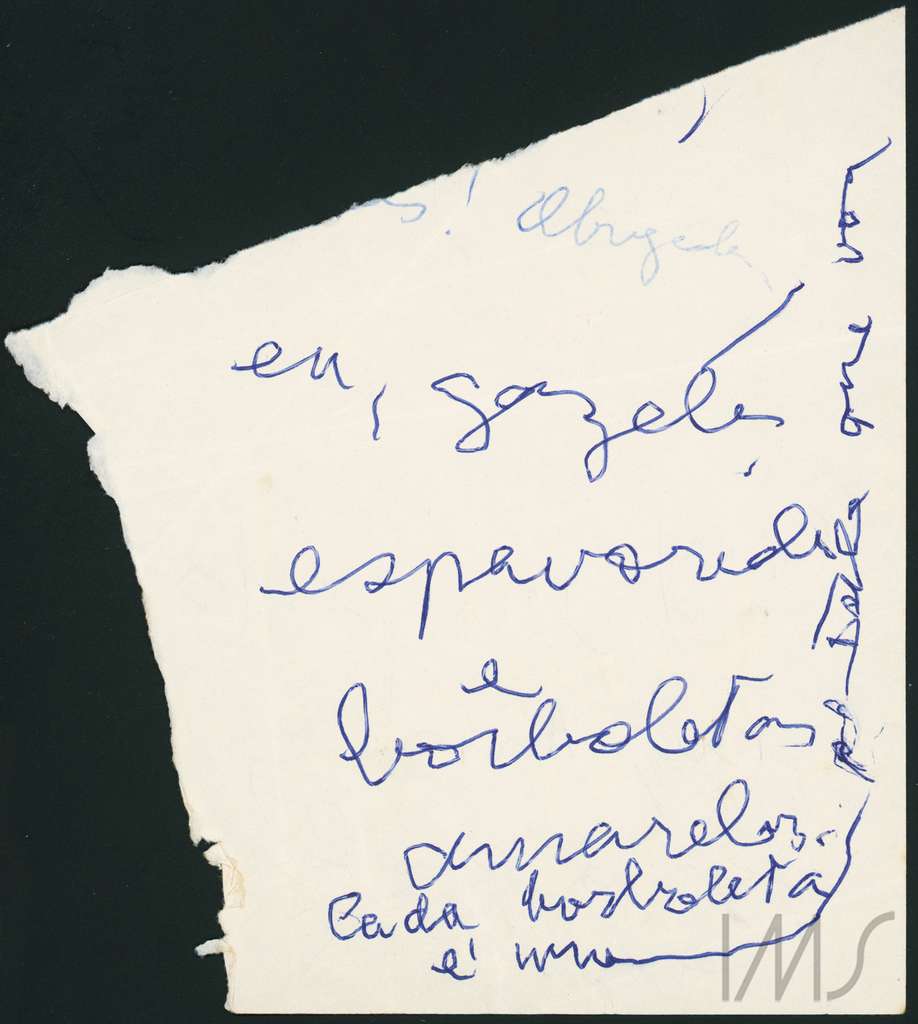 ! Obrigada
eu, gazela
espavorida
e
borboletas
amarelas.
Cada borboleta
é uma
pétala que voa
IMS